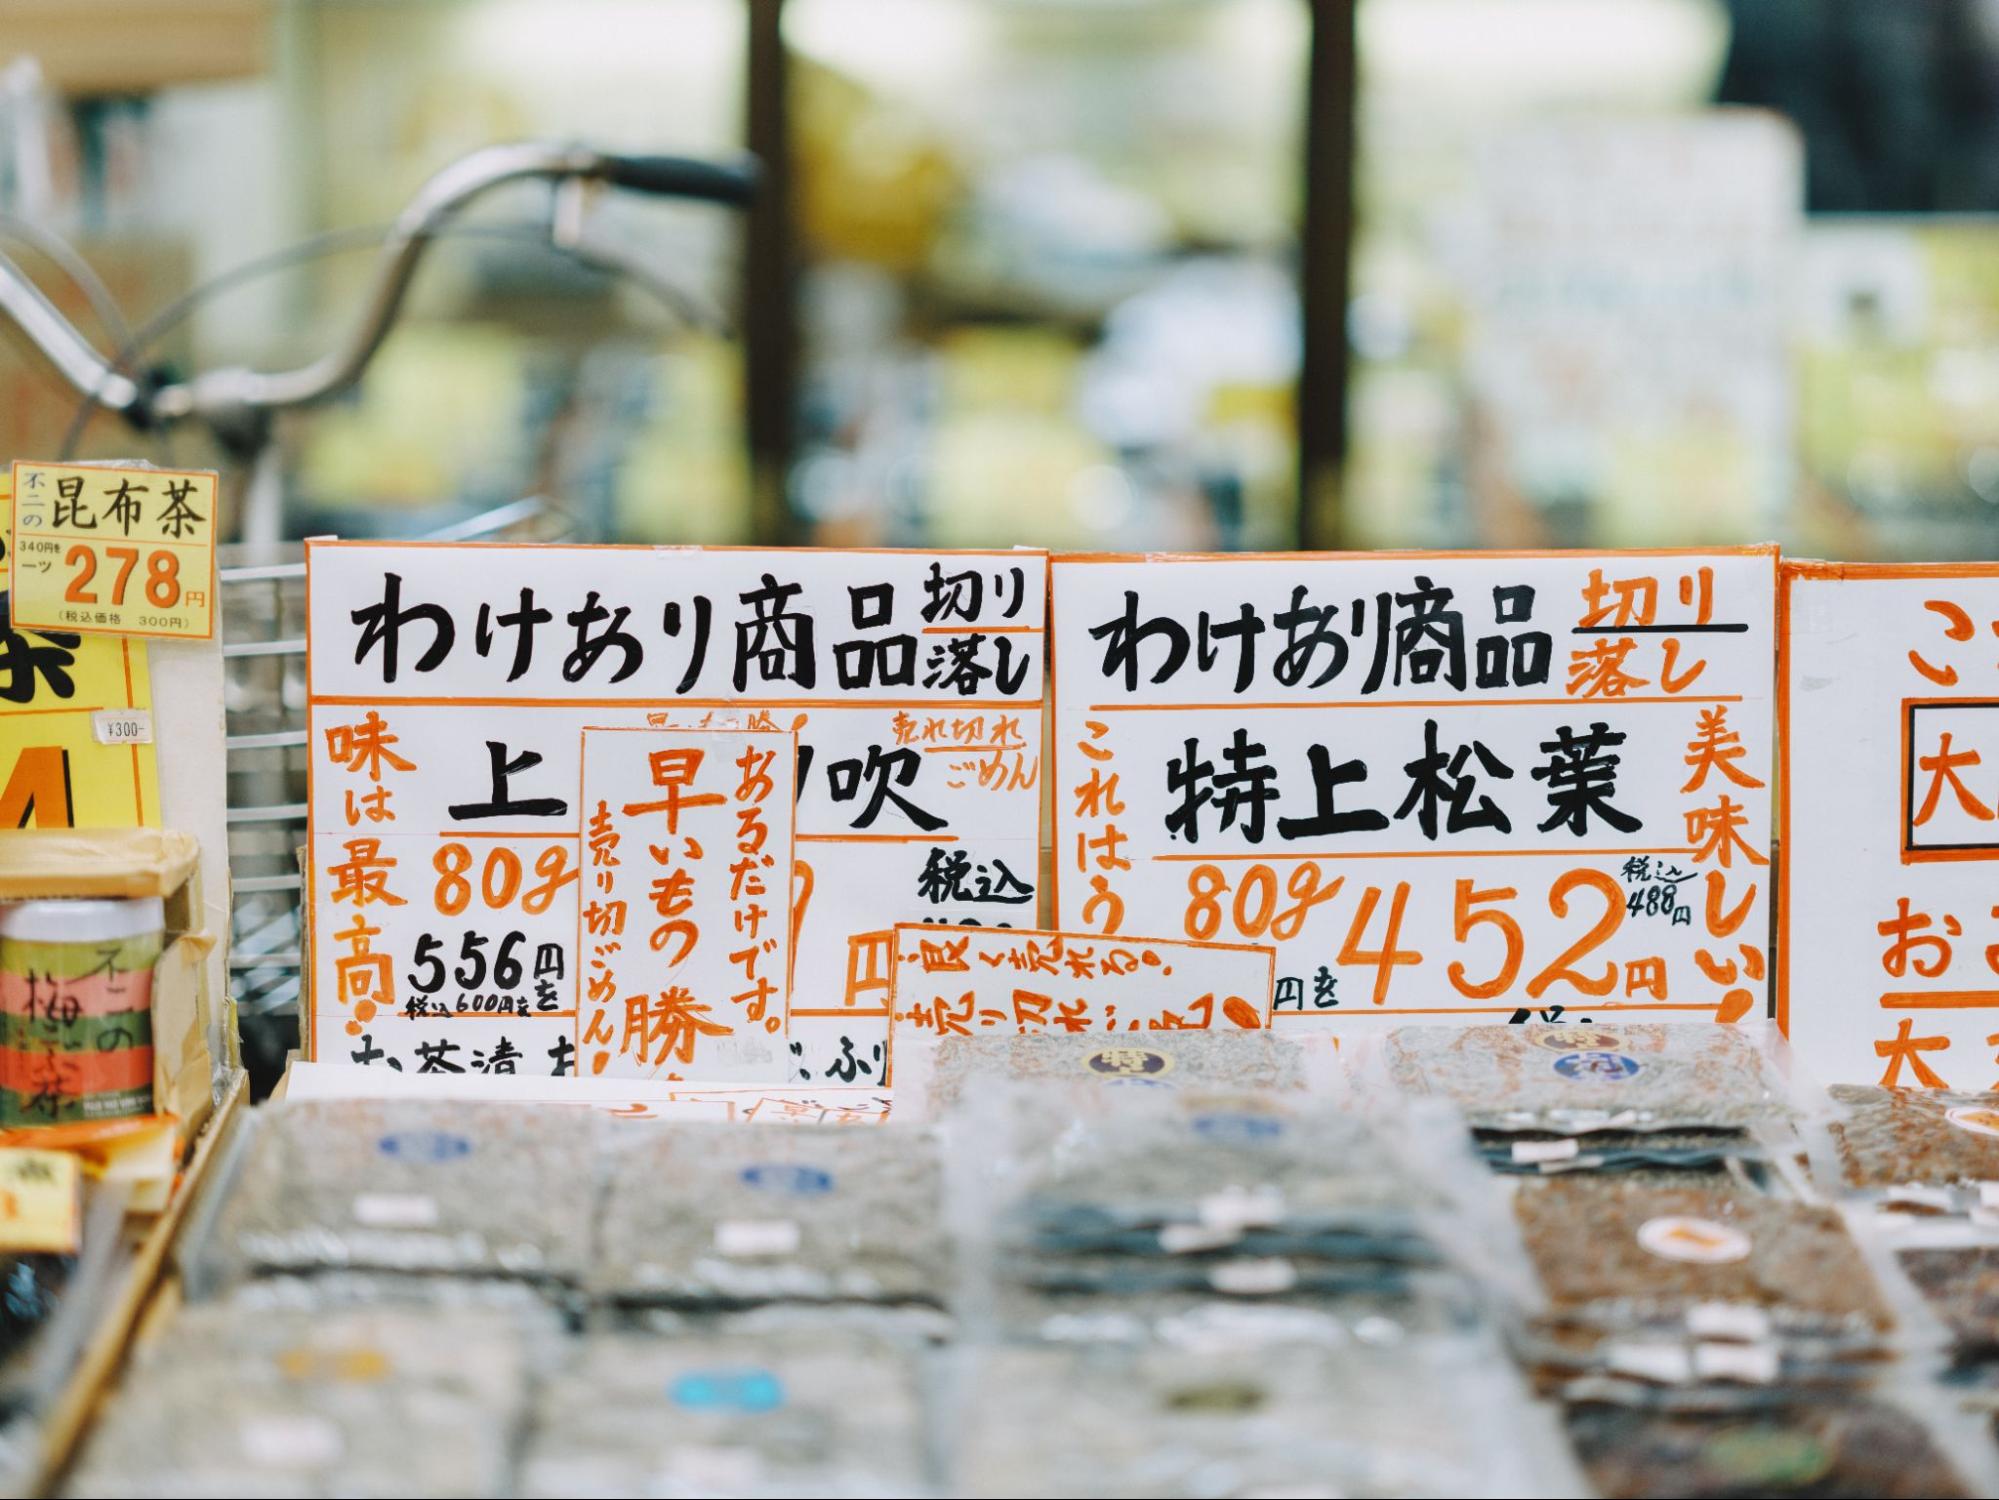 不二の
昆布茶
340円を
一ツ
278円
(税込価格 300円)
茶
¥300-
4
不二の
梅こぶ茶
わけあり商品
切り
落し
味は最高!
上
吹
売れ切れ
ごめん
80g
556円を
税込600円を
税込
円
お茶漬
ふり
おるだけです。
早いもの勝
売り切ごめん!
良く売れる。
売り切れごめん!
わけあり商品
切り
落し
これはう
特上松葉
美味しい!
80g
452円
税込
488円
円を
こ
大
お
大
特